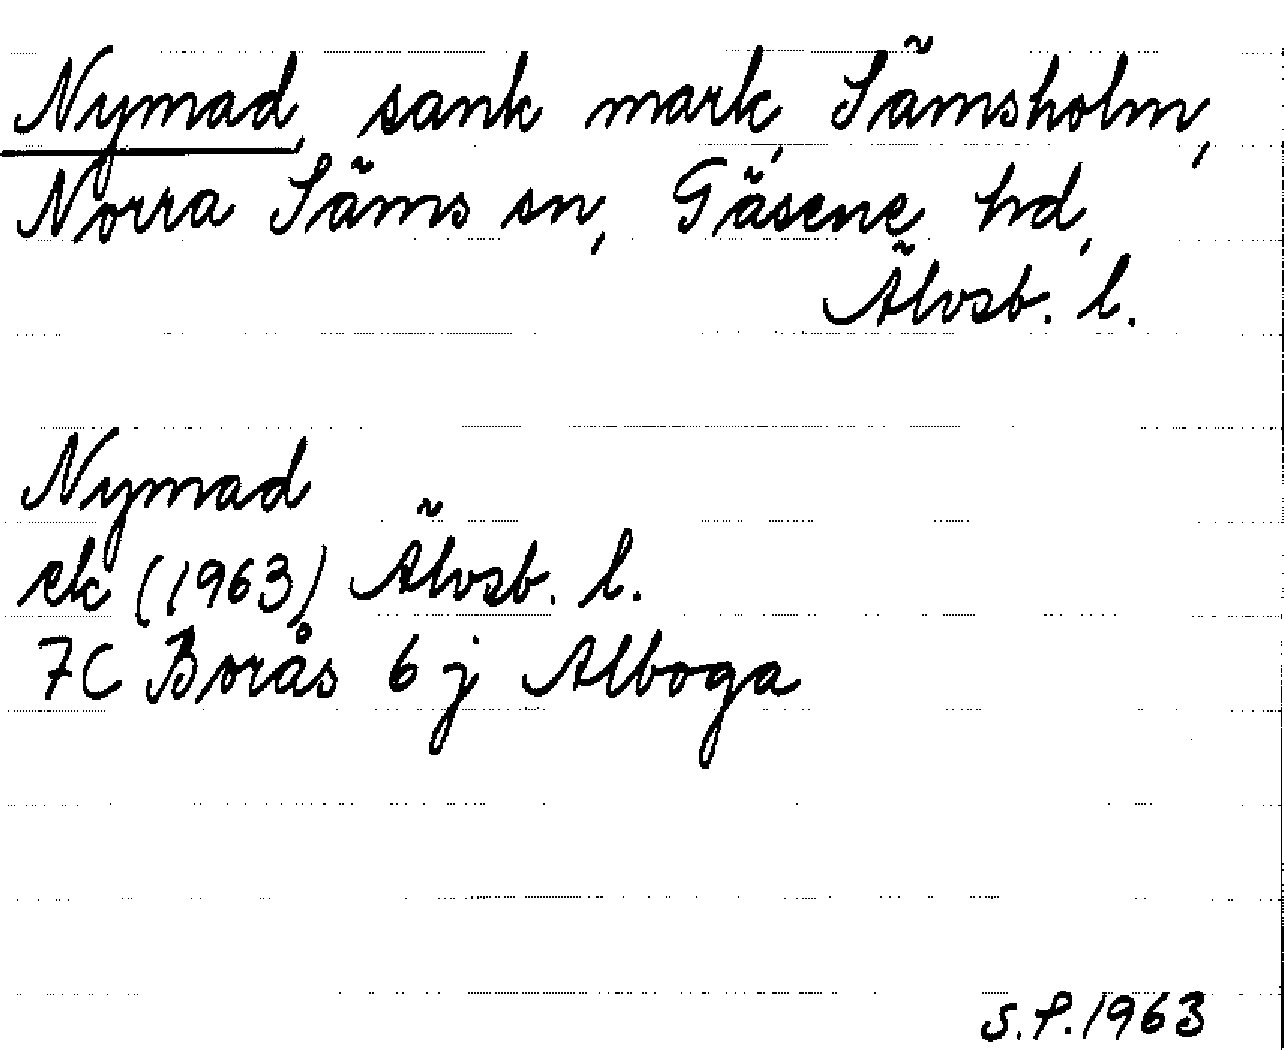 Nymad, sank mark, Sämsholm,
Norra Säms sn, Gäsene hd,
Älvsb. l.
Nymad
ek (1963) Älvsb. l.
7C Borås 6 j Alboga
S.P. 1963